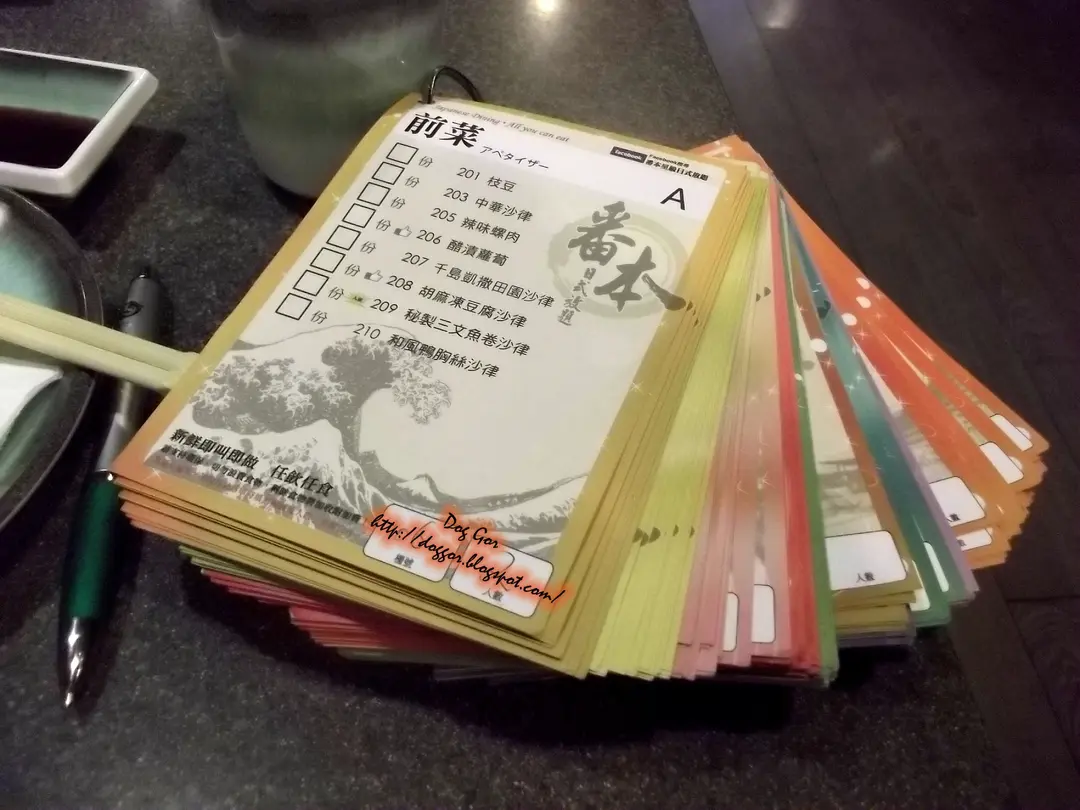 Japanese Dining • All you can eat
前菜 アペタイザー
facebook
番本屋騰日式放題
A
份 201 枝豆
份 203 中華沙律
份 205 辣味螺肉
份 206 醋漬蘿蔔
份 207 千島凱撒田園沙律
份 208 胡麻凍豆腐沙律
份 209 秘製三文魚卷沙律
210 和風鴨胸絲沙律
番本
日式放題
新鮮即叫即做 任飲任食
檯號
人數
Dog Gor
http://doggor.blogspot.com/
人數
人數